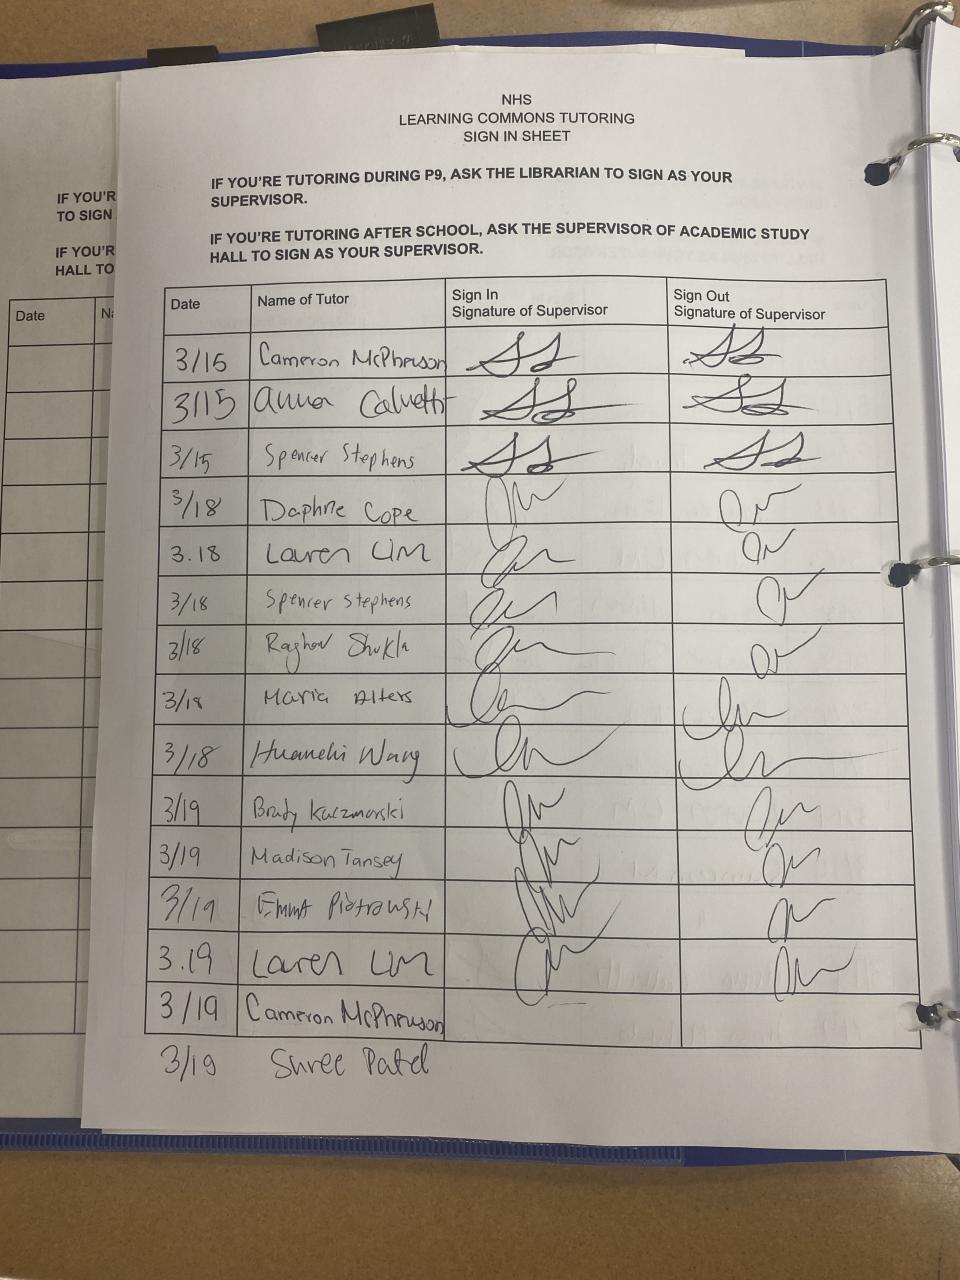 NHS
LEARNING COMMONS TUTORING
SIGN IN SHEET
IF YOU'RE TUTORING DURING P9, ASK THE LIBRARIAN TO SIGN AS YOUR
SUPERVISOR.
IF YOU'RE TUTORING AFTER SCHOOL, ASK THE SUPERVISOR OF ACADEMIC STUDY
HALL TO SIGN AS YOUR SUPERVISOR.
Date Name of Tutor Sign In Signature of Supervisor Sign Out Signature of Supervisor
3/15 Cameron McPherson
3/15 anna Calvetti
3/15 Spencer Stephens
3/18 Daphne Cope
3.18 Lauren Lim
3/18 Spencer Stephens
3/18 Raghav Shukla
3/18 Maria Alters
3/18 Wang
3/19 Brady Kaczmarski
3/19 Madison Tansey
3/19 Emma Piotrowski
3.19 Lauren Lim
3/19 Cameron McPherson
3/19 Shree Patel
IF YOU'R
TO SIGN
IF YOU'R
HALL TO
Date Na